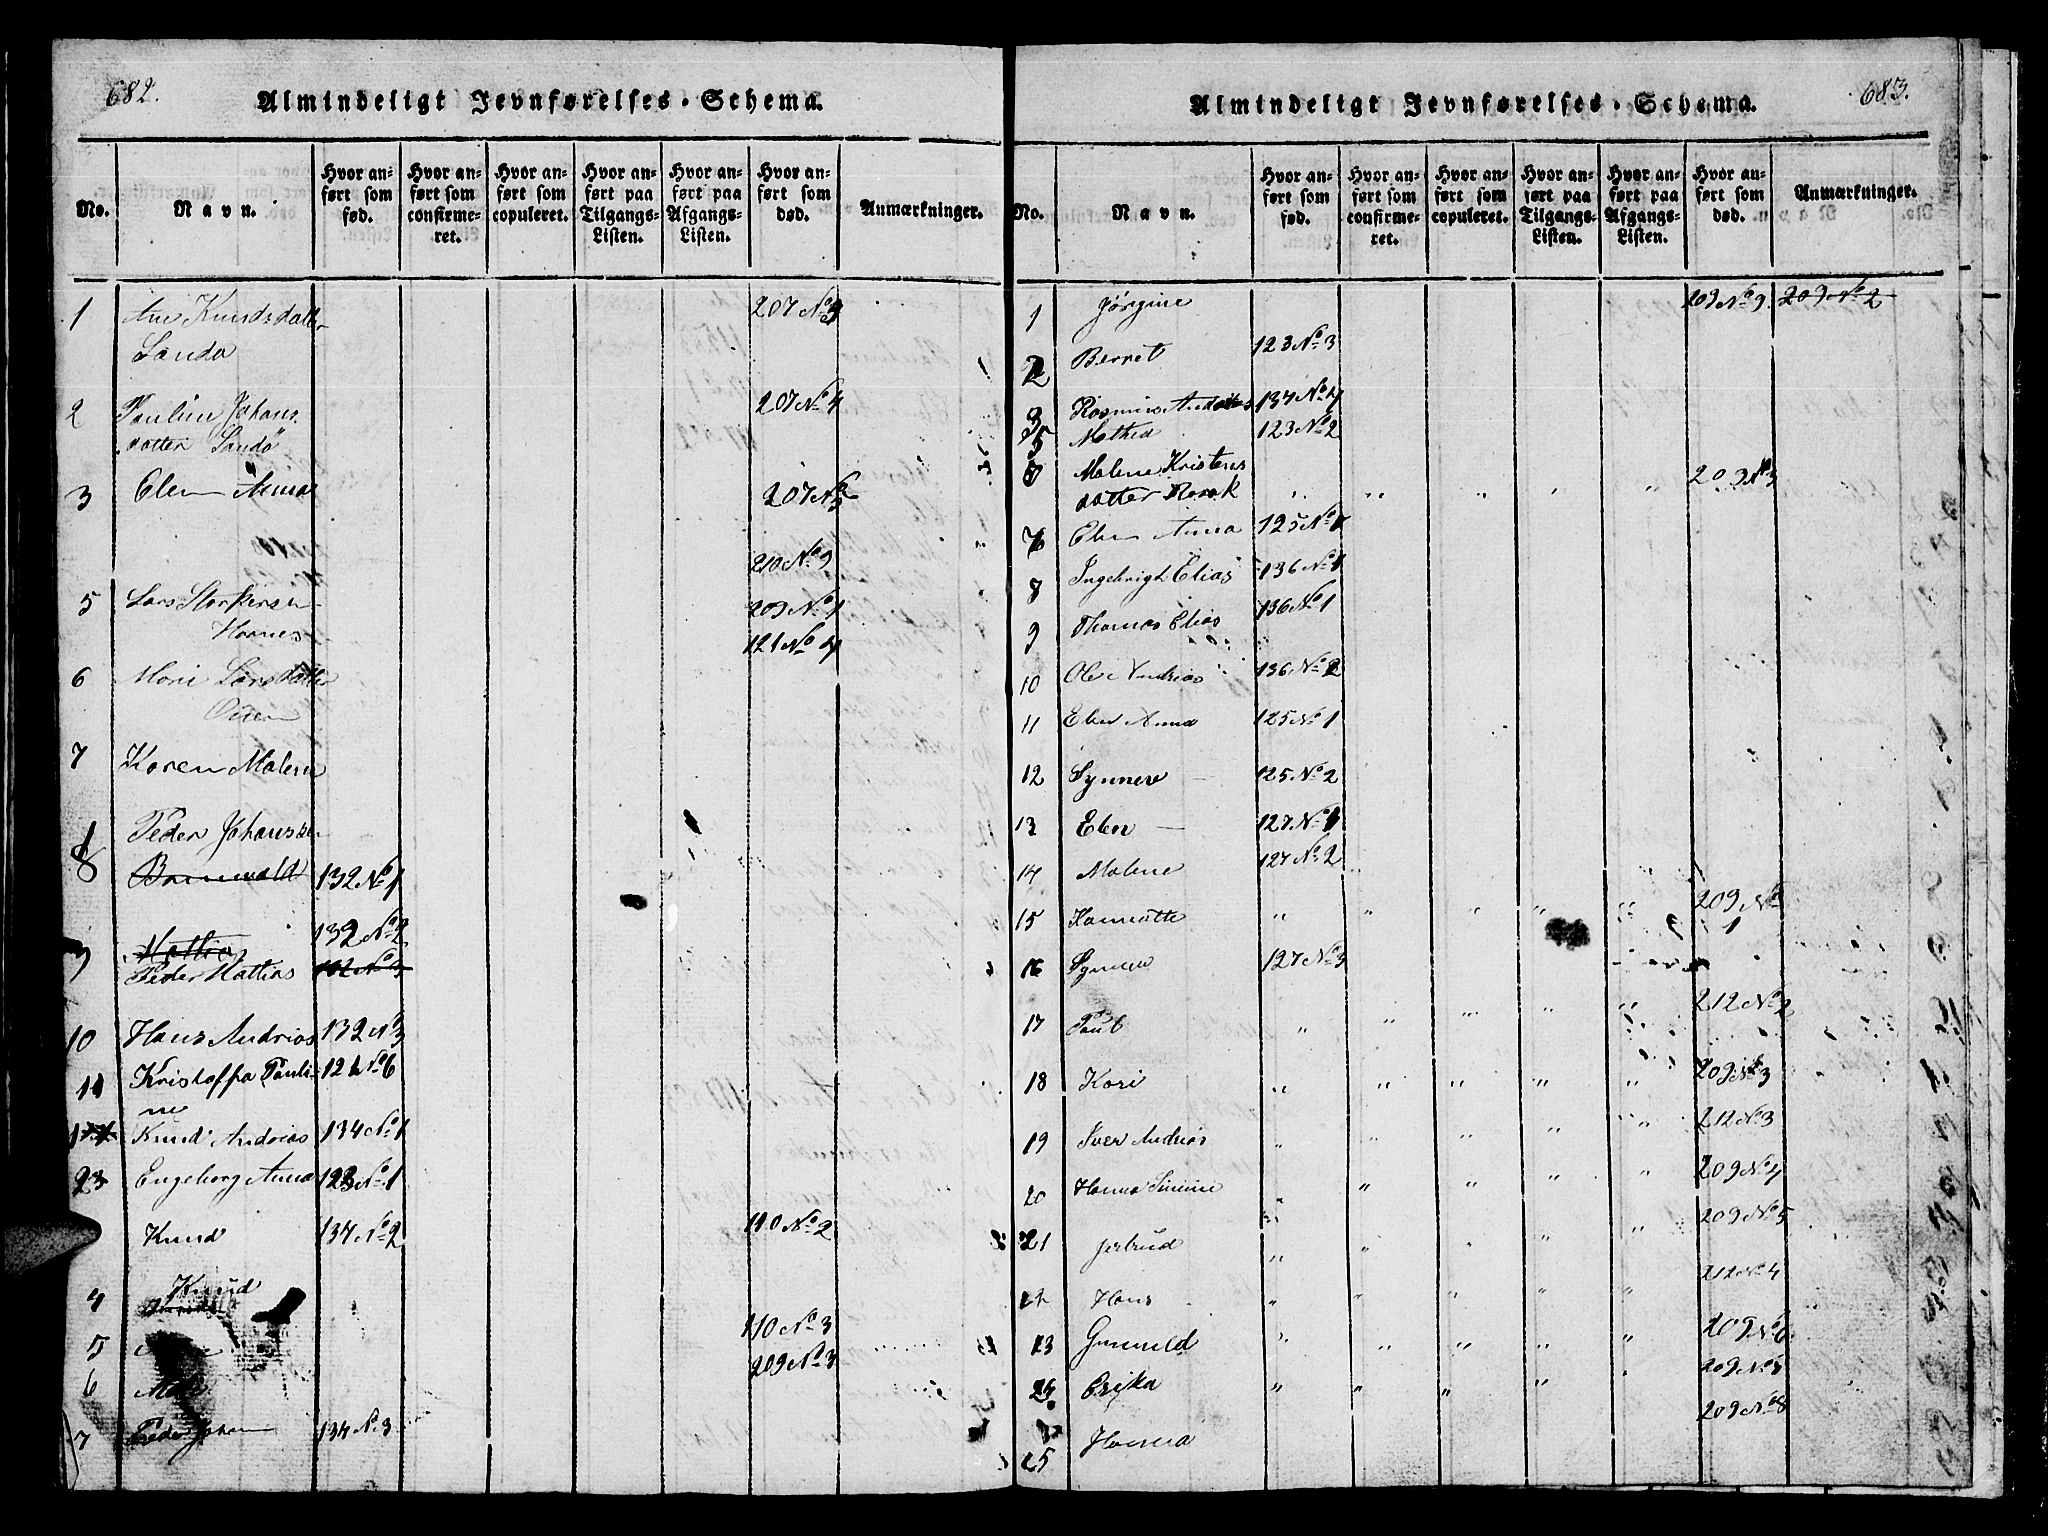 682.
Almindeligt Jevnførelses-Schema.
No.
Navn.
Hvor anført som fød.
Hvor anført som confirmeret.
Hvor anført som copuleret.
Hvor anført paa Tilgangs-Listen.
Hvor anført paa Afgangs-Listen.
Hvor anført som død.
Anmærkninger.
1 Ane Knudsdatter 207 No 3
Sandø
2 Pauline Johans 207 No 4
datter Sandø
3 Elen Anna 207 No 5
210 No 3
5 Lars Storkersen 209 No 1
Hornes 121 No 4
6 Mari Larsdatter
7 Karen Malene
Peder Johanssen
8 132 No 1
132 No 2
9 Mattias
Peder Mattias 132 No 3
10 Hans Andrias 132 No 3
11 Kristoffa Pauli- 121 No 6
ne
Knud Andreas 134 No 1
Engeborg Anna 123 No 1
Knud 134 No 2 110 No 2
4 Knud
5 110 No 3
6 209 No 3
7 Peder Johan 134 No 3
683.
Almindeligt Jevnførelses-Schema.
No.
Navn.
Hvor anført som fød.
Hvor anført som confirmeret.
Hvor anført som copuleret.
Hvor anført paa Tilgangs-Listen.
Hvor anført paa Afgangs-Listen.
Hvor anført som død.
Anmærkninger.
1 Jørgine 209 No 9. 209 No 2
2 Berret 123 No 3
3 Rasmus Andreas 134 No 4
5 Mathea 123 No 2
6 Malene Kristens
datter 209 No 3
7 Elen Anna 125 No 1
8 Ingebrigt Elias 136 No 1
9 Thomas Elias 136 No 1
10 Ole Andrias 136 No 2
11 Elen Anna 125 No 1
12 Synnere 125 No 2
13 Elen 127 No 1
14 Malene 127 No 2
15 209 No 1
16 Synneve 127 No 3
17 Paul 212 No 2
18 Kari 209 No 3
19 Iver Andrias 212 No 3
20 Hanna Simine 209 No 4
21 Jertrud 209 No 5
Hans 212 No 4
Gunnild 209 No 6
Erika 209 No 7
25 Hanna 209 No 8